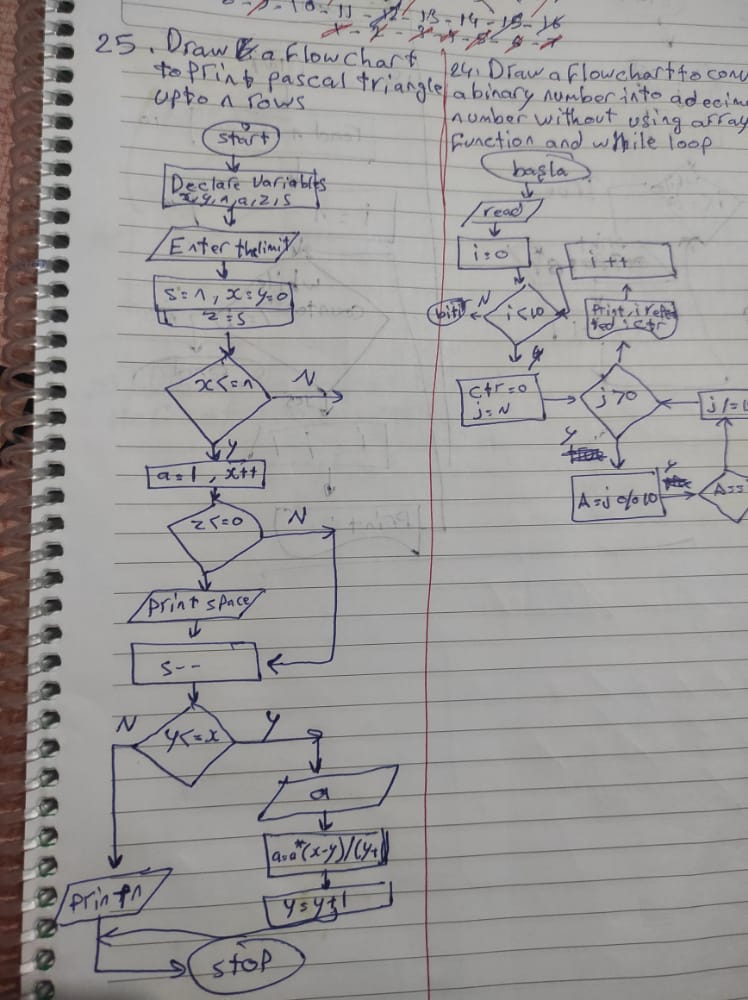 10-11-12-13-14-15-16
25. Draw a flowchart
to print pascal triangle
upto n rows
start
Declare variables
x,y,n,a,z,s
Enter the limit
s=n, x=y=0
z=s
x<=n
N
Y
a=1, x++
z<=0
N
print space
s--
y<=x
N
Y
a
a=a*(x-y)/(y+1
y=y+1
print n
stop
24. Draw a flowchart to conv
a binary number into a decima
number without using array
function and while loop
başla
read
i=0
i<10
N
bitti
Y
i++
ctr=0
j=N
j>0
Y
A=j%10
Y
A==
j/=10